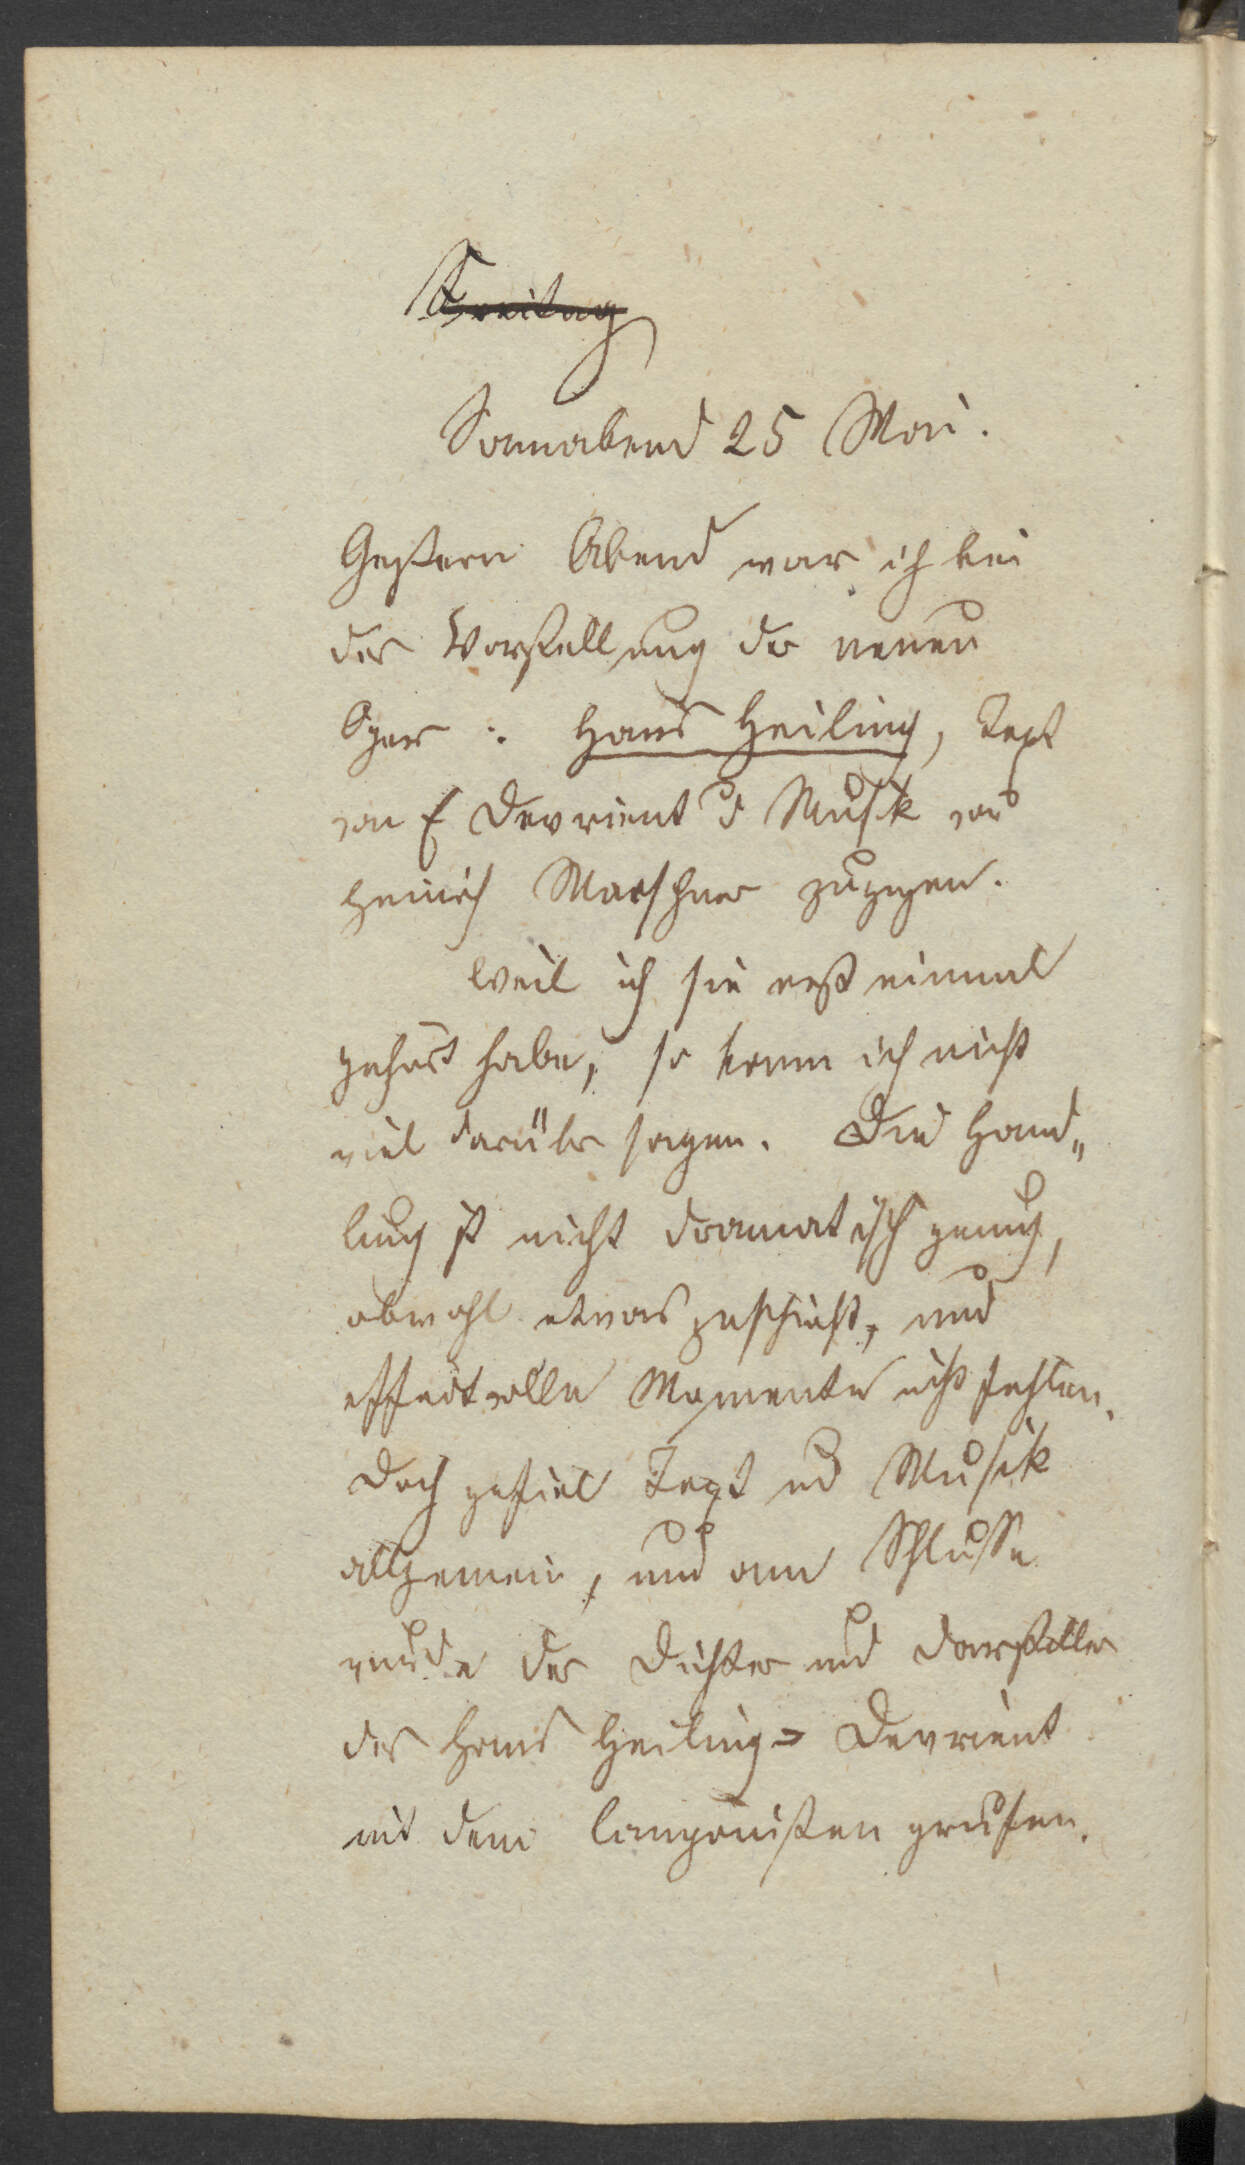 Freitag
Sonnabend 25 Mai.
Gestern Abend war ich bei
der Vorstellung der neuen
Oper: Hans Heiling, Text
von E Devrient u Musik von
Heinrich Marschner zugegen.
Weil ich sie erst einmal
gehört habe, so kann ich nicht
viel darüber sagen. Die Hand„
lung ist nicht dramatisch genug,
obwohl etwas geschieht, und
effectvolle Momente nicht fehlen.
Doch gefiel Text und Musik
allgemein, und am Schlusse
wurde der Dichter und Darsteller
des Hans Heiling = Devrient
mit dem Componisten gerufen.